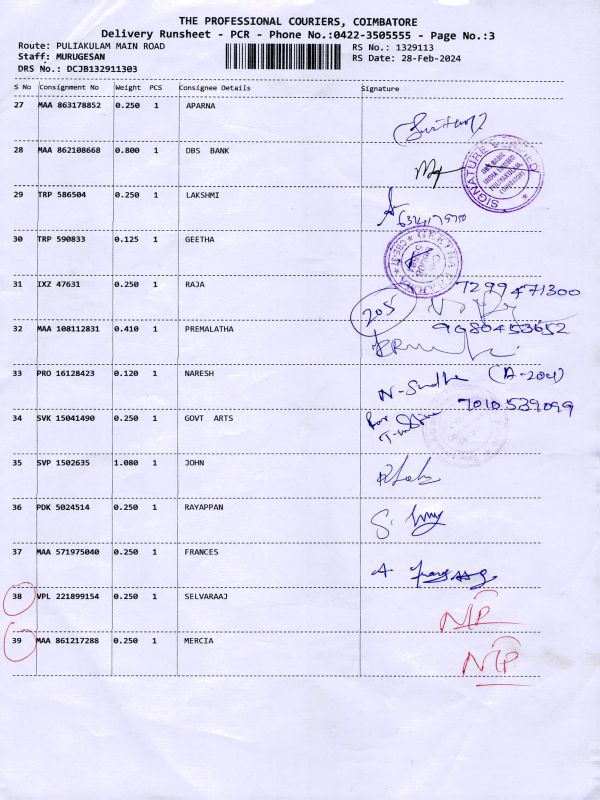 THE PROFESSIONAL COURIERS, COIMBATORE
Delivery Runsheet - PCR - Phone No.:0422-3505555 - Page No.:3
Route: PULIAKULAM MAIN ROAD
RS No.: 1329113
Staff: MURUGESAN
RS Date: 28-Feb-2024
DRS No.: DCJB132911303
S No Consignment No Weight PCS Consignee Details Signature
27 MAA 863178852 0.250 1 APARNA
28 MAA 862108668 0.800 1 DBS BANK
SIGNATURE
29 TRP 586504 0.250 1 LAKSHMI
30 TRP 590833 0.125 1 GEETHA
31 IXZ 47631 0.250 1 RAJA
7299471300
205
32 MAA 108112831 0.410 1 PREMALATHA
9080453652
33 PRO 16128423 0.120 1 NARESH
N-Sudha (A-204)
7010539099
34 SVK 15041490 0.250 1 GOVT ARTS
35 SVP 1502635 1.080 1 JOHN
36 PDK 5024514 0.250 1 RAYAPPAN
37 MAA 571975040 0.250 1 FRANCES
38 VPL 221899154 0.250 1 SELVARAAJ
39 MAA 861217288 0.250 1 MERCIA